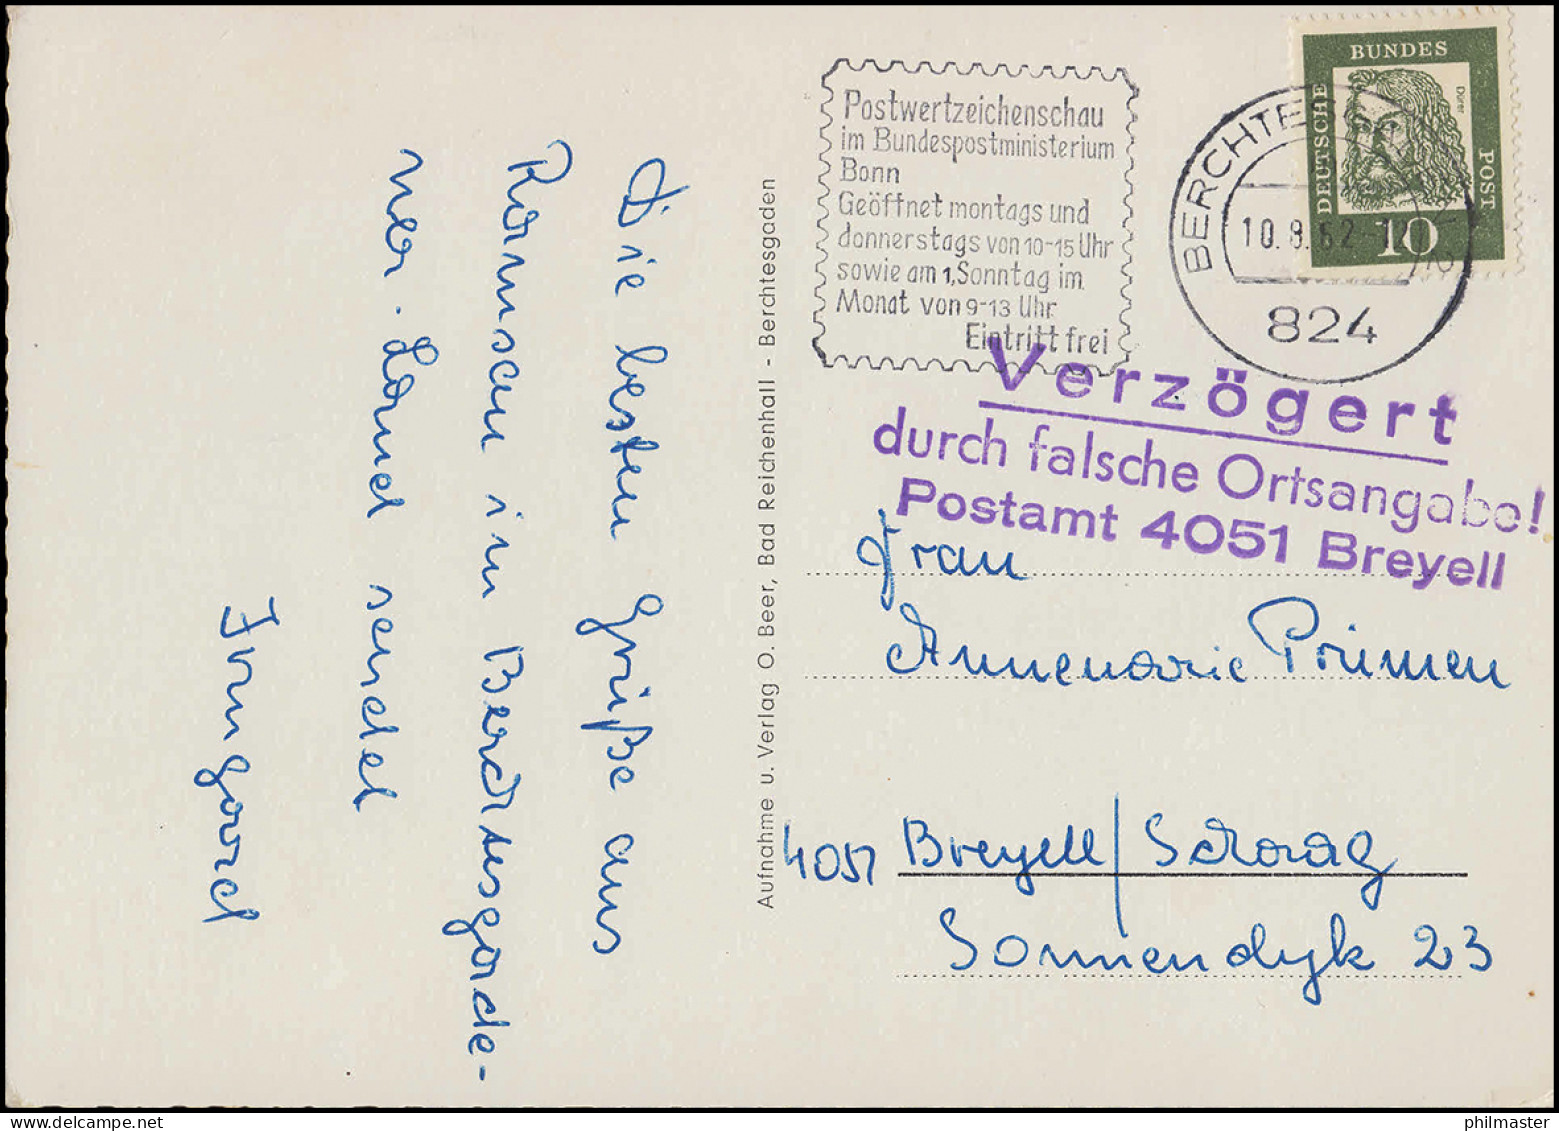 Die besten Grüße aus
Ramsau in Berchtesgade-
ner-Land sendet
Irmgard
Aufnahme u. Verlag O. Beer, Bad Reichenhall - Berchtesgaden
Postwertzeichenschau
im Bundespostministerium
Bonn
Geöffnet montags und
donnerstags von 10-15 Uhr
sowie am 1. Sonntag im
Monat von 9-13 Uhr
Eintritt frei
BERCHTES
10.8.62
824
BUNDES
DEUTSCHE
POST
Dürer
10
Verzögert
durch falsche Ortsangabe!
Postamt 4051 Breyell
Frau
Annemarie Prümen
4051 Breyell/Schaag
Sonnendyk 23
philmaster